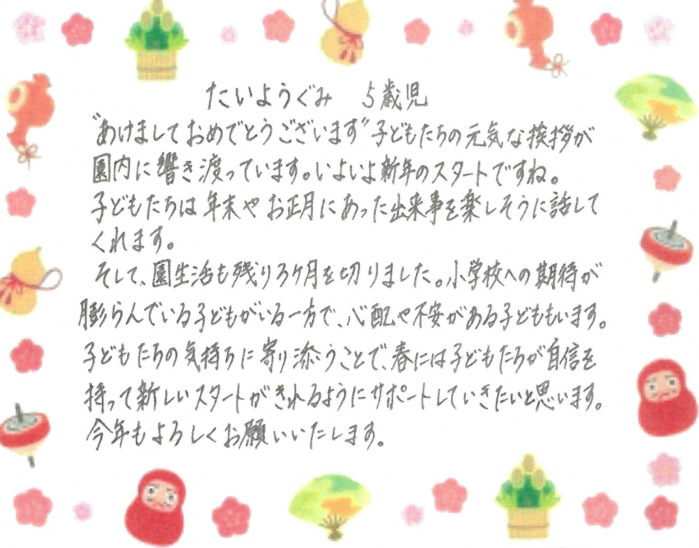 たいようぐみ　5歳児
"あけましておめでとうございます"子どもたちの元気な挨拶が
園内に響き渡っています。いよいよ新年のスタートですね。
子どもたちは年末やお正月にあった出来事を楽しそうに話して
くれます。
そして、園生活も残り3ヶ月を切りました。小学校への期待が
膨らんでいる子どもがいる一方で、心配や不安がある子どももいます。
子どもたちの気持ちに寄り添うことで、春には子どもたちが自信を
持って新しいスタートがきれるようにサポートしていきたいと思います。
今年もよろしくお願いいたします。